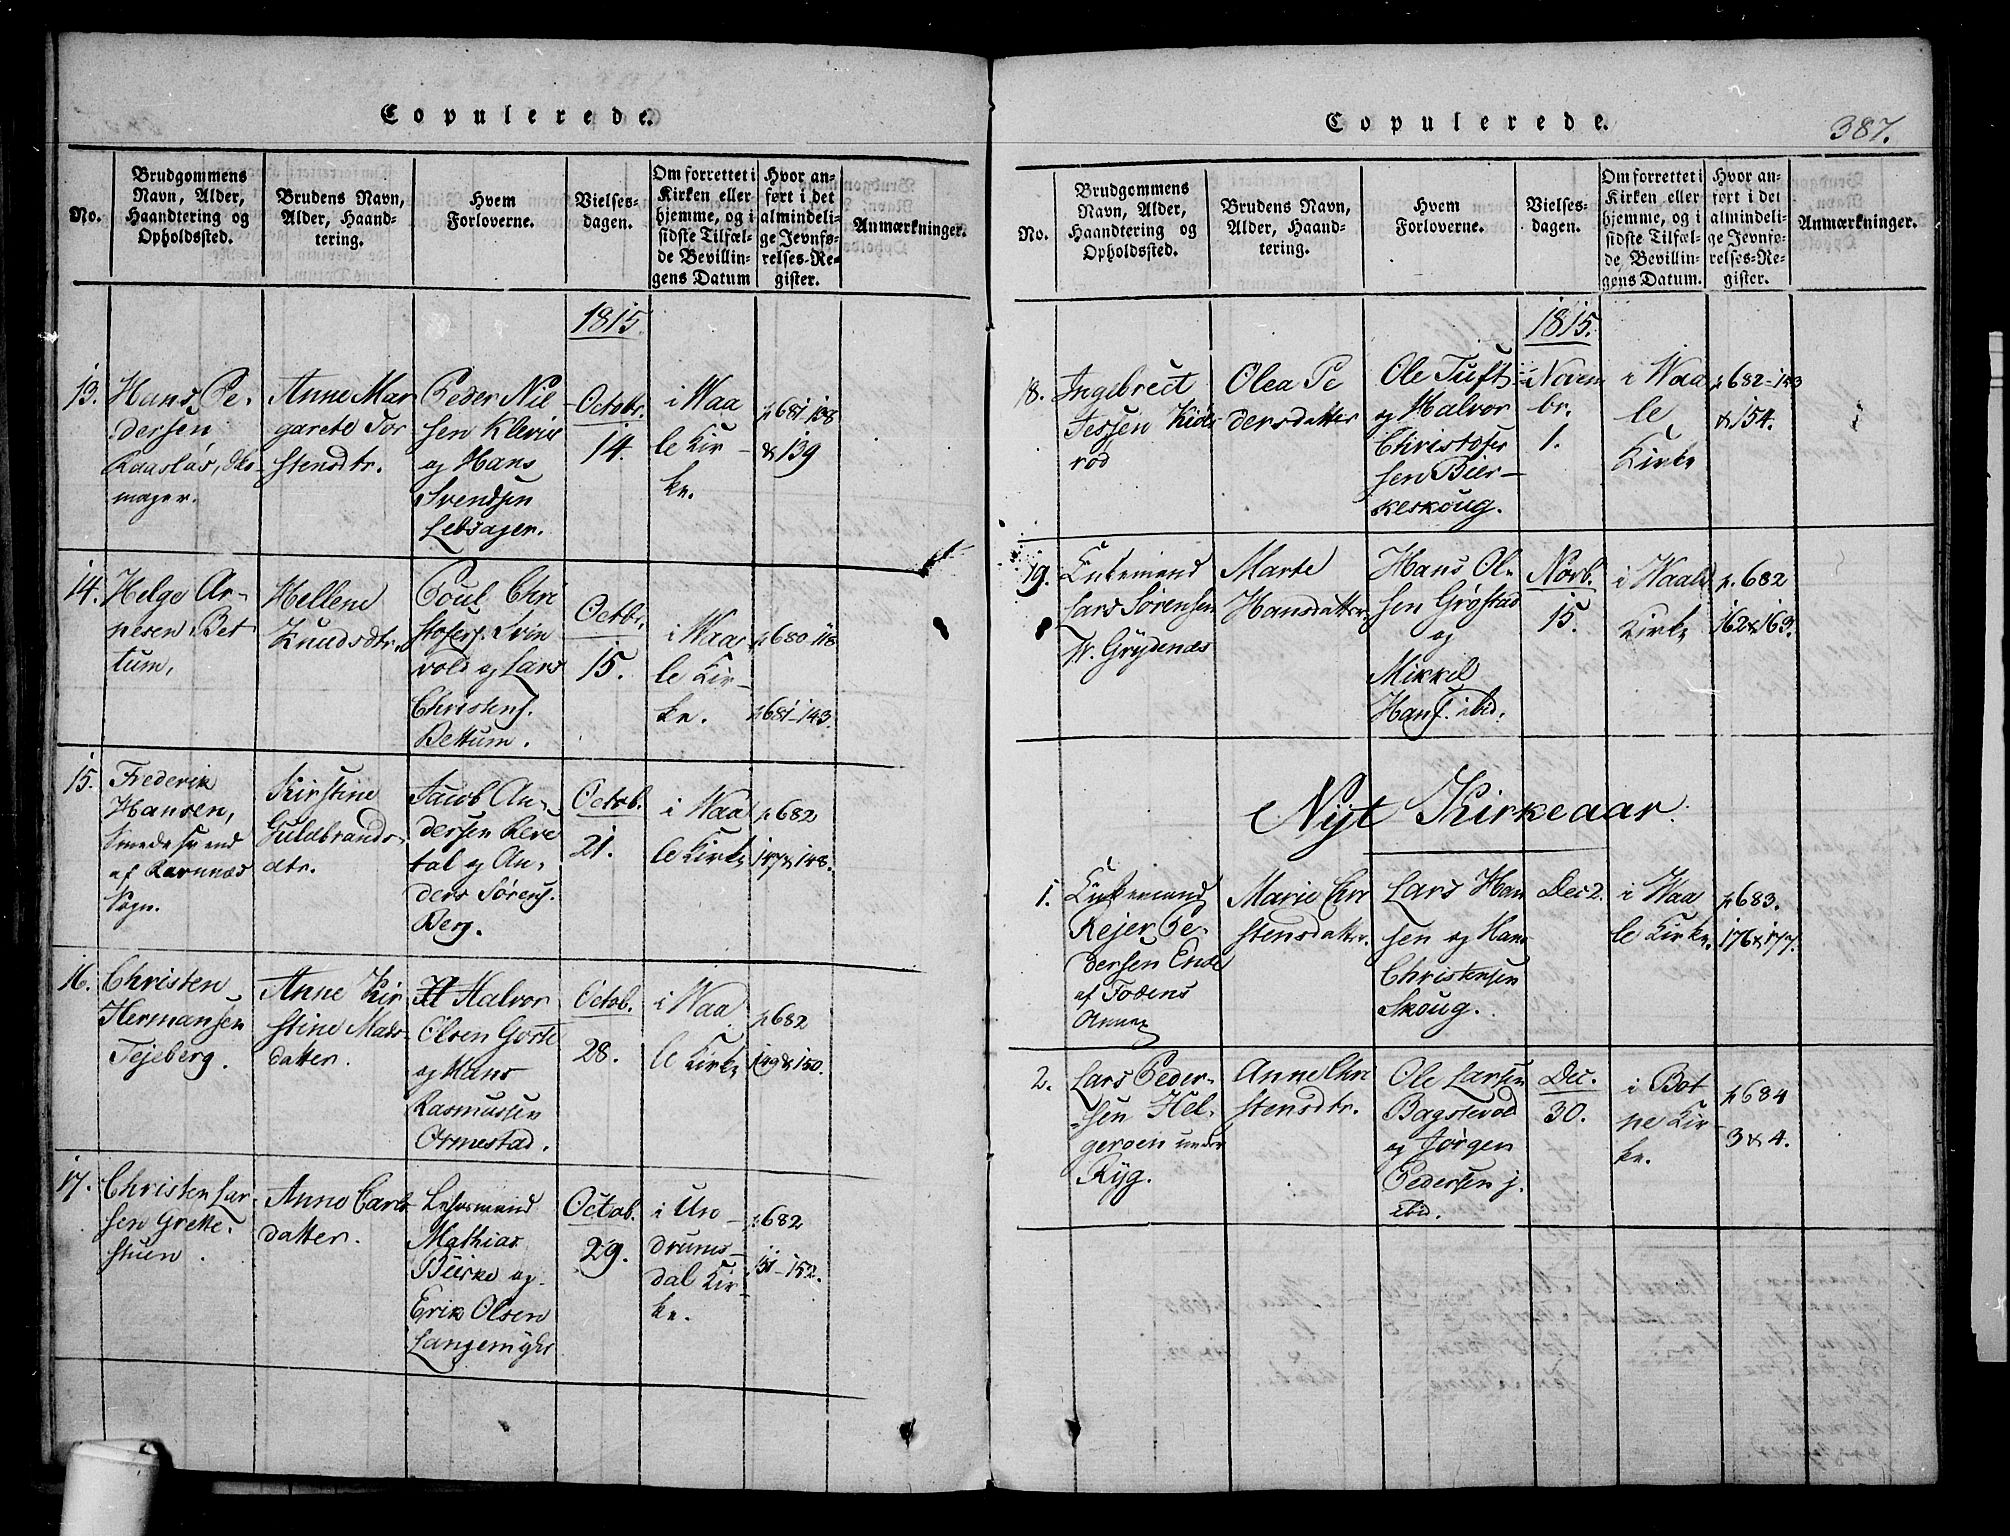 Copulerede.
No.
Brudgommens
Navn, Alder,
Haandtering og
Opholdssted.
Brudens Navn,
Alder, Haand-
tering.
Hvem
Forloverne.
Vielses-
dagen.
Om forrettet i
Kirken eller
hjemme, og i
sidste Tilfæl-
de Bevillin-
gens Datum
Hvor an-
ført i det
almindeli-
ge Jevnfø-
relses-Re-
gister.
Anmærkninger.
1815.
13.
Hans Pe-
dersen
Raaslås, Sko-
mager.
Anne Mar
garete Tor
stensdtr.
Peder Niel
sen Klevie
og Hans
Svendsen
Lebsager.
Octobr.
14.
i Waa
le Kir-
ke.
p681-138
& 139
14.
Helge Ar-
nesen Bet
tum,
Hellene
Knudsdtr.
Poul Chri
stofers. Svin
vold og Lars
Christens.
Bettum.
Octbr.
15.
i Waa
le Kir-
ke.
p680-118
p681-143.
15.
Frederik
Hansen,
Smedesvend
af Ramnæs
Sogn.
Kirstine
Guldbrands-
dtr.
Jacob An-
dersen Reve
tal og An-
ders Sørens.
Berg.
Octob.
21.
i Waa
le Kirke
p682
147&148.
16.
Christen
Hermansen
Tejeberg.
Anne Kir
stine Mads
datter.
Halvor
Olsen Gorte
og Hans
Rasmussen
Ormestad.
Octob.
28.
i Waa
le Kirke
p682
149&150.
17.
Christen Lar-
sen Grette-
stuen.
Anne Carls
datter.
Lehnsmand
Mathias
Bierke og
Erik Olsen
Langemyhr
Octob.
29.
i Un-
drums-
dal Kir-
ke.
p682
151-152.
Copulerede.
387.
No.
Brudgommens
Navn, Alder,
Haandtering og
Opholdssted.
Brudens Navn,
Alder, Haand-
tering.
Hvem
Forloverne.
Vielses-
dagen.
Om forrettet i
Kirken eller
hjemme, og i
sidste Tilfæl-
de Bevillin-
gens Datum.
Hvor an-
ført i det
almindeli-
ge Jevnfø-
relses-Re-
gister.
Anmærkninger.
1815.
18.
Ingebrect
Jessen Kide
rød
Olea Pe
dersdatter
Ole Tuft
og Halvor
Christofer
sen Bier-
keskoug.
Novem
br.
1.
i Waa
le
Kirke
p682-153
& 154.
19.
Enkemand
Lars Sørensen
W. Grydenæs
Marte
Hansdatter
Hans Ol-
sen Grøstad
og
Mikkel
Hans. ibid.
Novb.
15.
i Waale
Kirke
p.682
162&163.
Nyt Kirkeaar.
1.
Enkemand
Rejer Pe-
dersen Ende
af Fodens
Annex
Marie Chri
stensdatter.
Lars Han
sen og Hans
Christensen
Skoug.
Dec 2.
i Waa
le Kirke.
p683.
176&177.
2.
Lars Peder-
sen Hel-
geroen under
Ryg.
Anne Chri
stensdtr.
Ole Larsen
Bagstevold
og Jørgen
Pedersen j.
ibid.
Dec.
30.
i Bot
ne Kir-
ke.
p684
3&4.